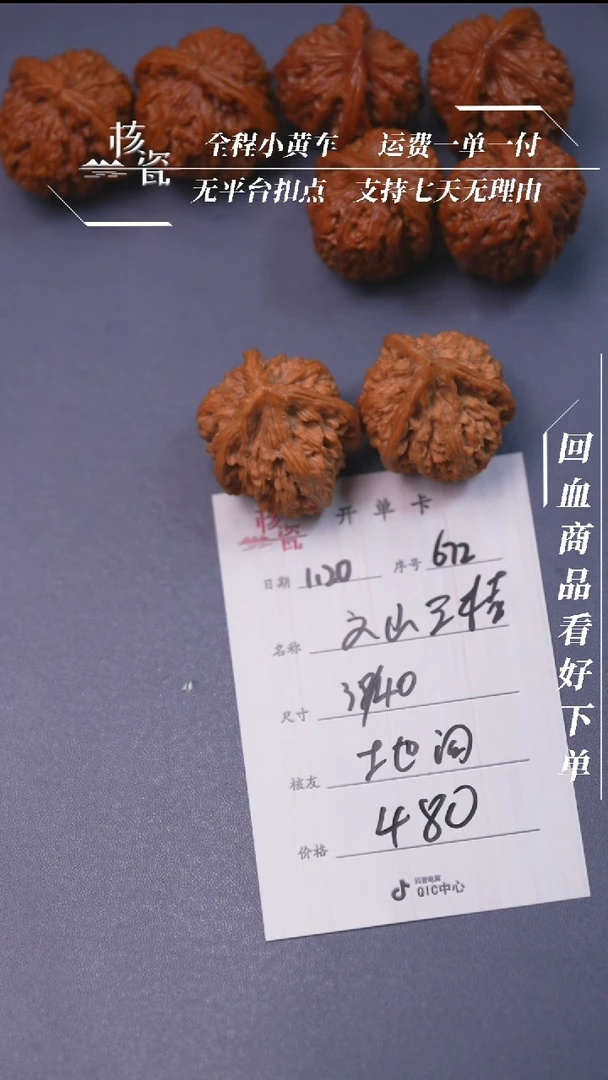 核瓷
全程小黄车 运费一单一付
无平台扣点 支持七天无理由
回血商品看好下单
核瓷 开单卡
日期 1.20 序号 672
名称 文山
尺寸 39/40
核友
价格 480
抖音电商
QIC中心